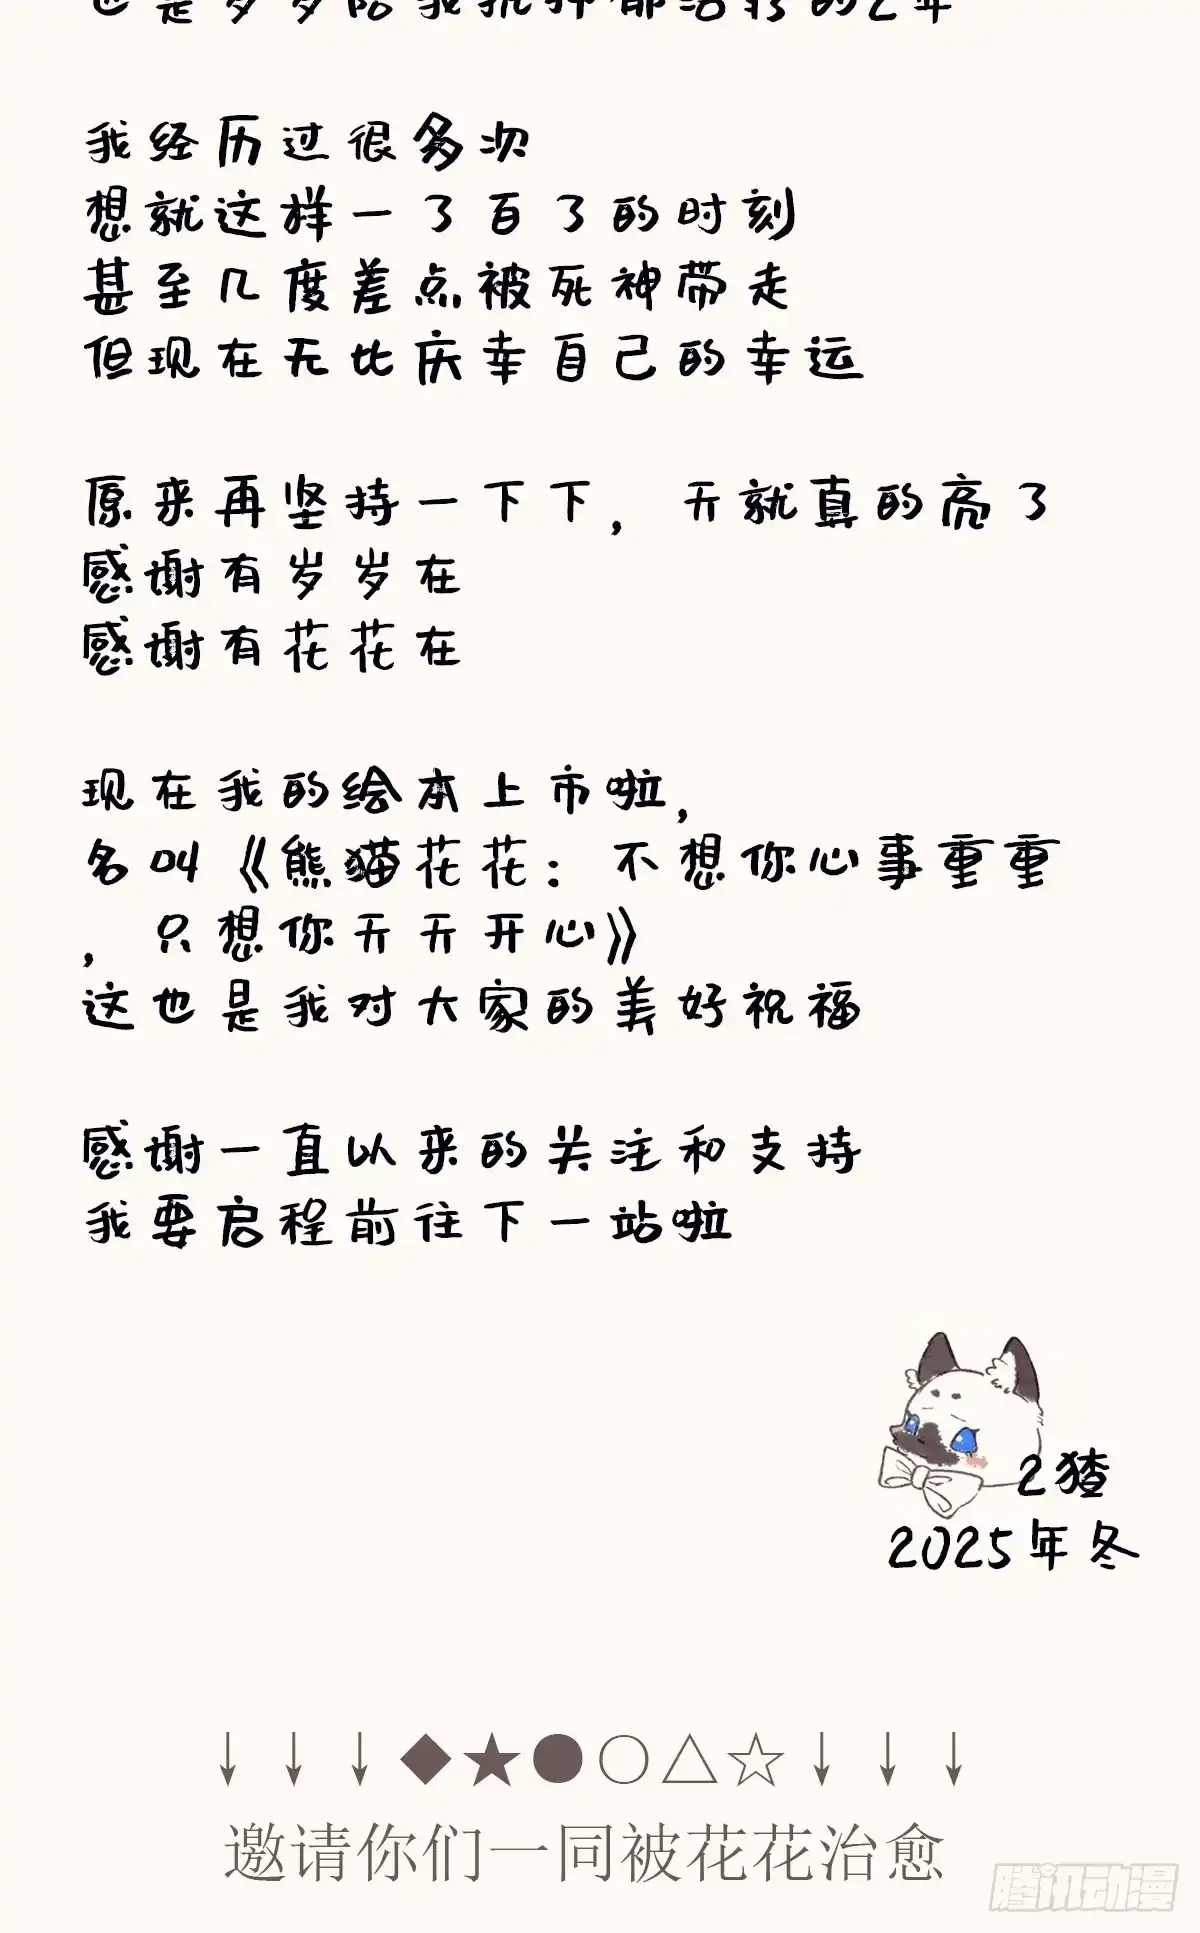 也是岁岁陪我抗抑郁治疗的2年
我经历过很多次
想就这样一了百了的时刻
甚至几度差点被死神带走
但现在无比庆幸自己的幸运
原来再坚持一下下，天就真的亮了
感谢有岁岁在
感谢有花花在
现在我的绘本上市啦，
名叫《熊猫花花：不想你心事重重
，只想你天天开心》
这也是我对大家的美好祝福
感谢一直以来的关注和支持
我要启程前往下一站啦
2猹
2025年冬
↓↓↓◆★●○△☆↓↓↓
邀请你们一同被花花治愈
腾讯动漫